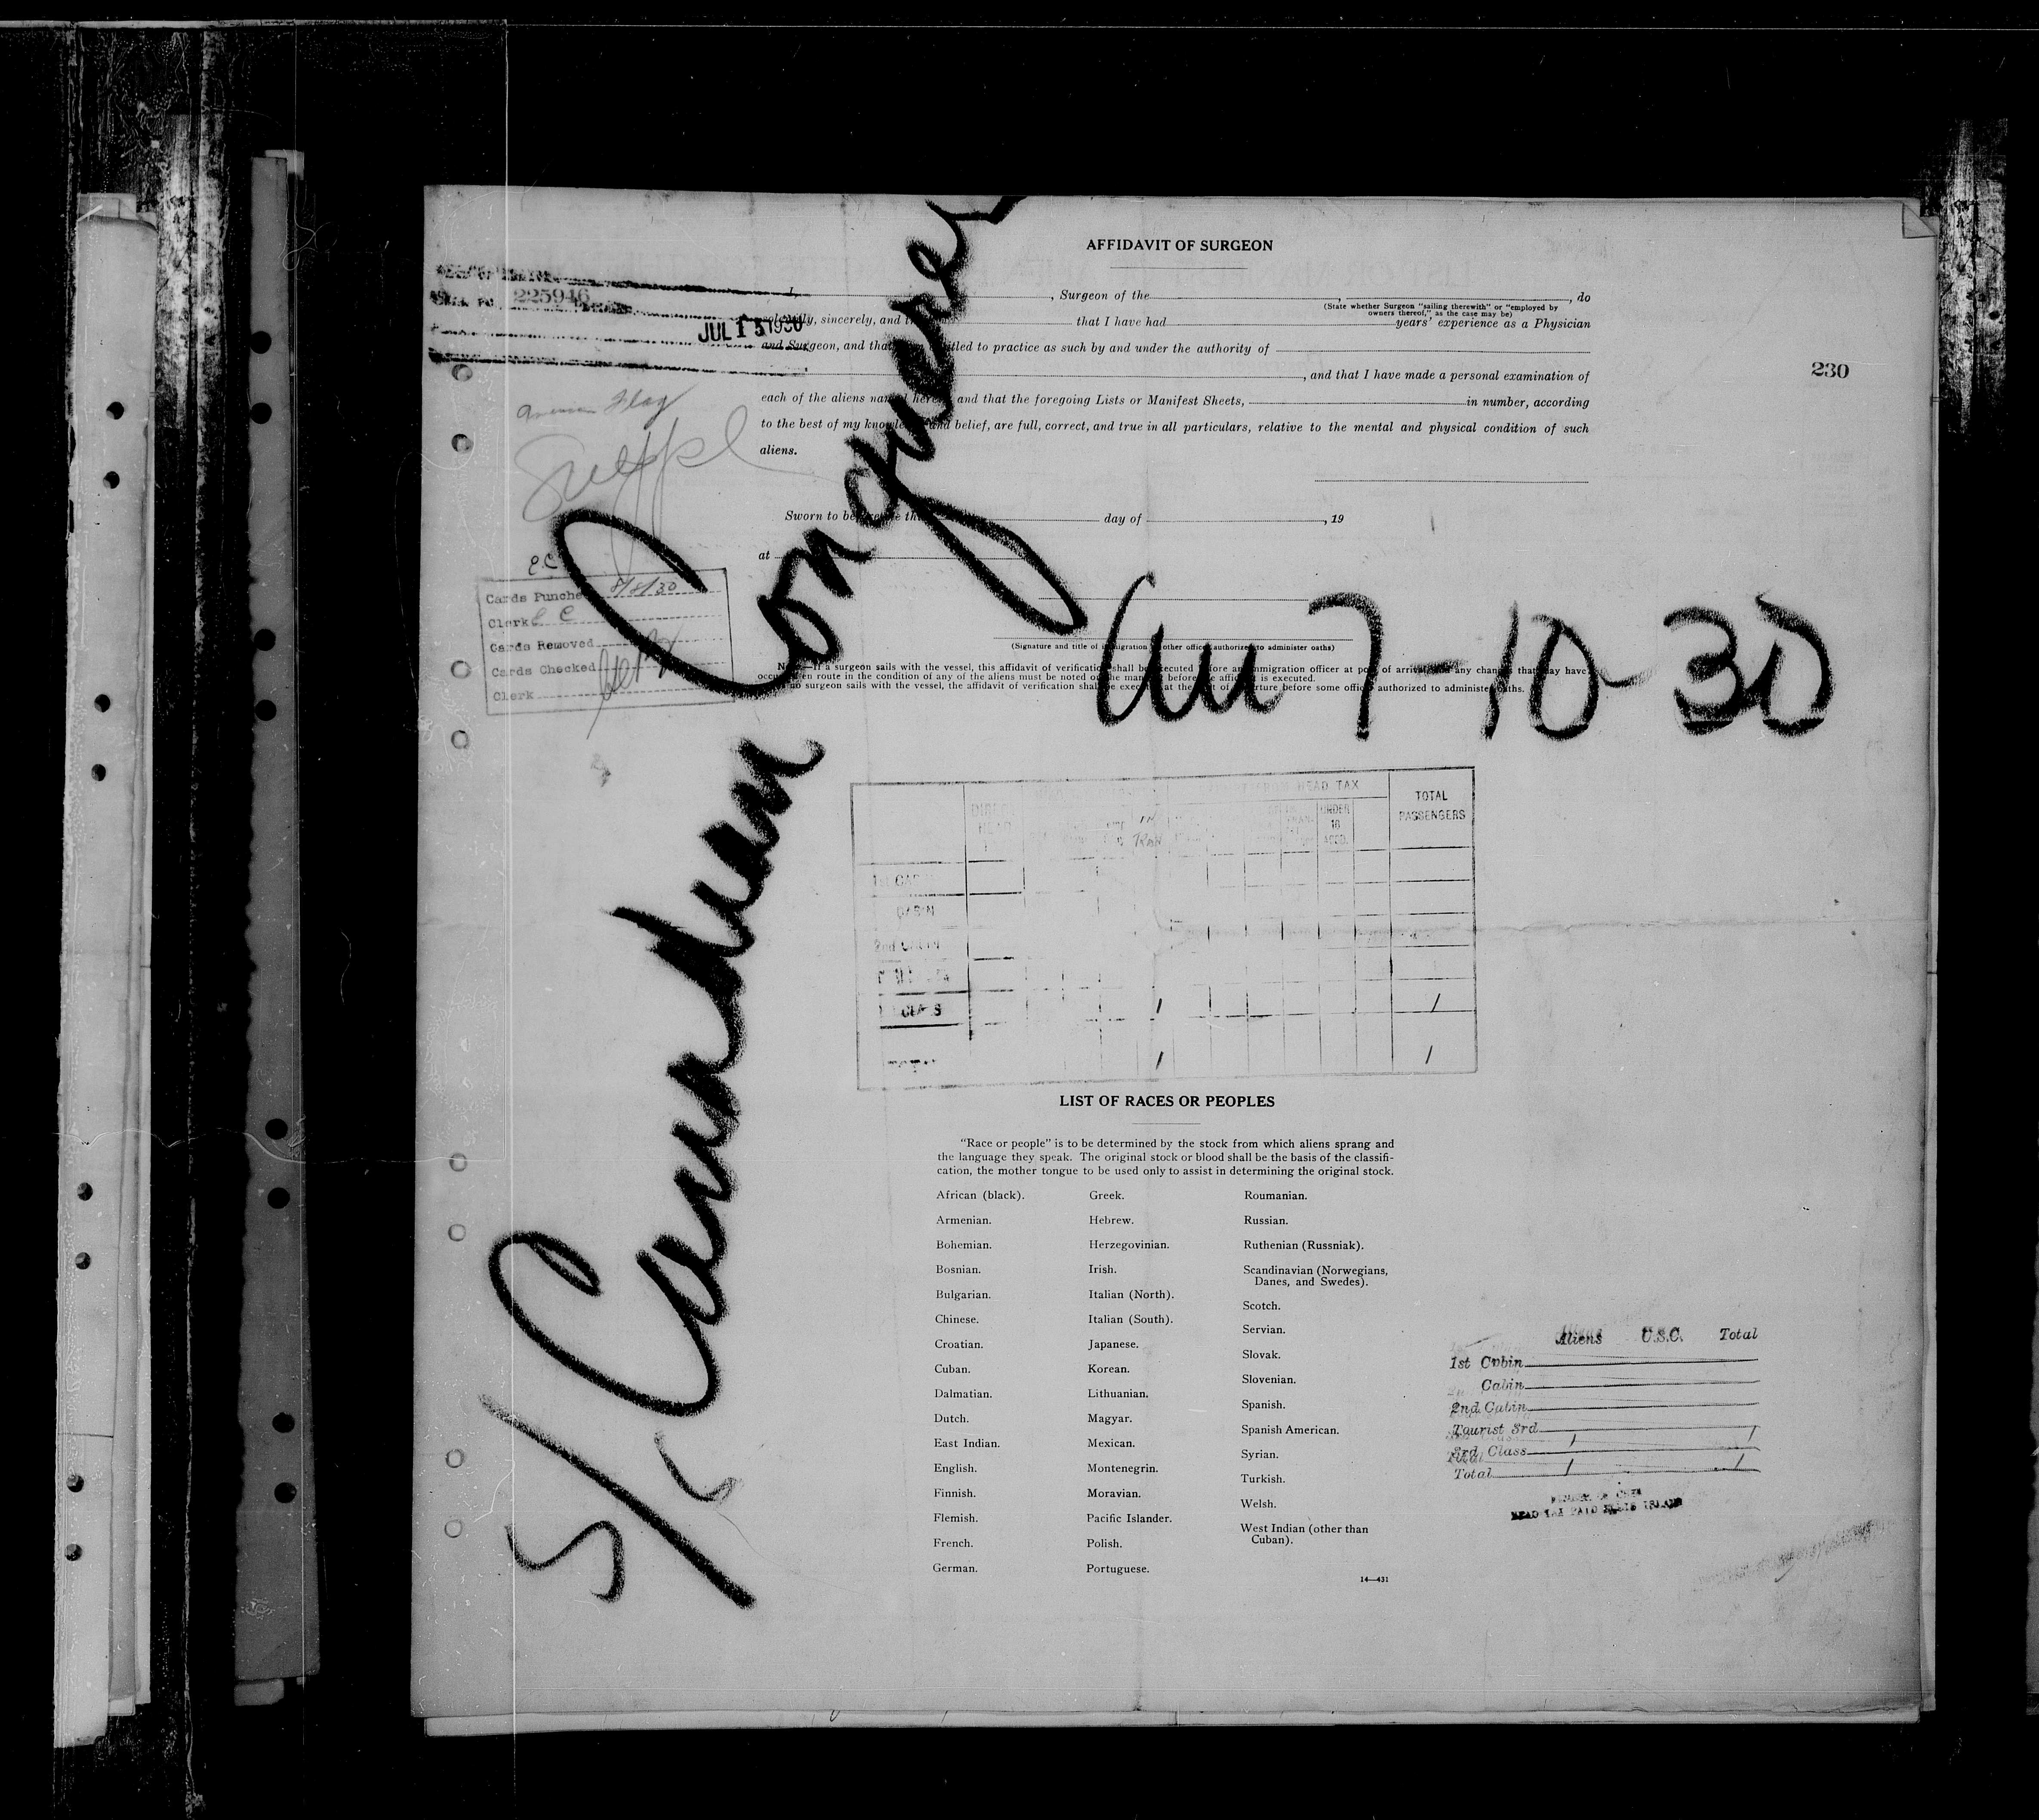 AFFIDAVIT OF SURGEON
225946
JUL 15 1930
I, , Surgeon of the , , do
(State whether Surgeon "sailing therewith" or "employed by
owners thereof," as the case may be)
solemnly, sincerely, and that I have had years' experience as a Physician
and Surgeon, and that titled to practice as such by and under the authority of
, and that I have made a personal examination of
230
each of the aliens named herein and that the foregoing Lists or Manifest Sheets, in number, according
to the best of my knowledge and belief, are full, correct, and true in all particulars, relative to the mental and physical condition of such
aliens.
Flag
Suppl
Sworn to before day of , 19
at
S/S Canadian Conquerer
Arr 7-10-30
CC
Cards Punched 8/8/30
Clerk C C
Cards Removed
Cards Checked
Clerk
(Signature and title of immigration or other officer authorized to administer oaths)
Note.—If a surgeon sails with the vessel, this affidavit of verification shall be executed before an immigration officer at port of arrival any changes that may have
occurred en route in the condition of any of the aliens must be noted on the manifest before affidavit is executed.
no surgeon sails with the vessel, the affidavit of verification shall be executed at the port of departure before some officer authorized to administer oaths.
HEAD TAX
TOTAL
PASSENGERS
UNDER
16
ACCD.
1st CABIN
CABIN
2nd CABIN
CLASS 1 1
1 1
LIST OF RACES OR PEOPLES
"Race or people" is to be determined by the stock from which aliens sprang and
the language they speak. The original stock or blood shall be the basis of the classifi-
cation, the mother tongue to be used only to assist in determining the original stock.
African (black).
Armenian.
Bohemian.
Bosnian.
Bulgarian.
Chinese.
Croatian.
Cuban.
Dalmatian.
Dutch.
East Indian.
English.
Finnish.
Flemish.
French.
German.
Greek.
Hebrew.
Herzegovinian.
Irish.
Italian (North).
Italian (South).
Japanese.
Korean.
Lithuanian.
Magyar.
Mexican.
Montenegrin.
Moravian.
Pacific Islander.
Polish.
Portuguese.
Roumanian.
Russian.
Ruthenian (Russniak).
Scandinavian (Norwegians,
Danes, and Swedes).
Scotch.
Servian.
Slovak.
Slovenian.
Spanish.
Spanish American.
Syrian.
Turkish.
Welsh.
West Indian (other than
Cuban).
14—431
Aliens U.S.C. Total
1st Cabin
Cabin
2nd Cabin
Tourist 3rd
3rd Class 1 1
Total 1 1
HEAD TAX PAID ELLIS ISLAND